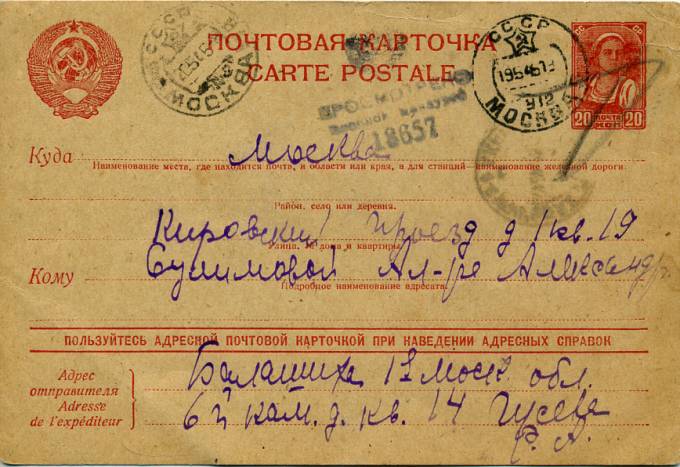 СССР
МОСКВА
ПОЧТОВАЯ КАРТОЧКА
CARTE POSTALE
СССР
19545.13
МОСКВА
ПОЧТА
20 КОП 20
ПРОСМОТРЕНО
Военной Цензурой
18657
Куда Москва
Наименование места, где находится почта, и области или края, а для станций—наименование железной дороги
Район, село или деревня.
Кировский проезд д 1 кв. 19
Улица, № дома и квартиры
Кому Сулимовой Ал-ре Александр.
Подробное наименование адресата.
ПОЛЬЗУЙТЕСЬ АДРЕСНОЙ ПОЧТОВОЙ КАРТОЧКОЙ ПРИ НАВЕДЕНИИ АДРЕСНЫХ СПРАВОК
Адрес отправителя
Adresse de l'expéditeur
Балашиха 12 моск обл.
6й кам. д. кв. 14 Гусева
Р. А.